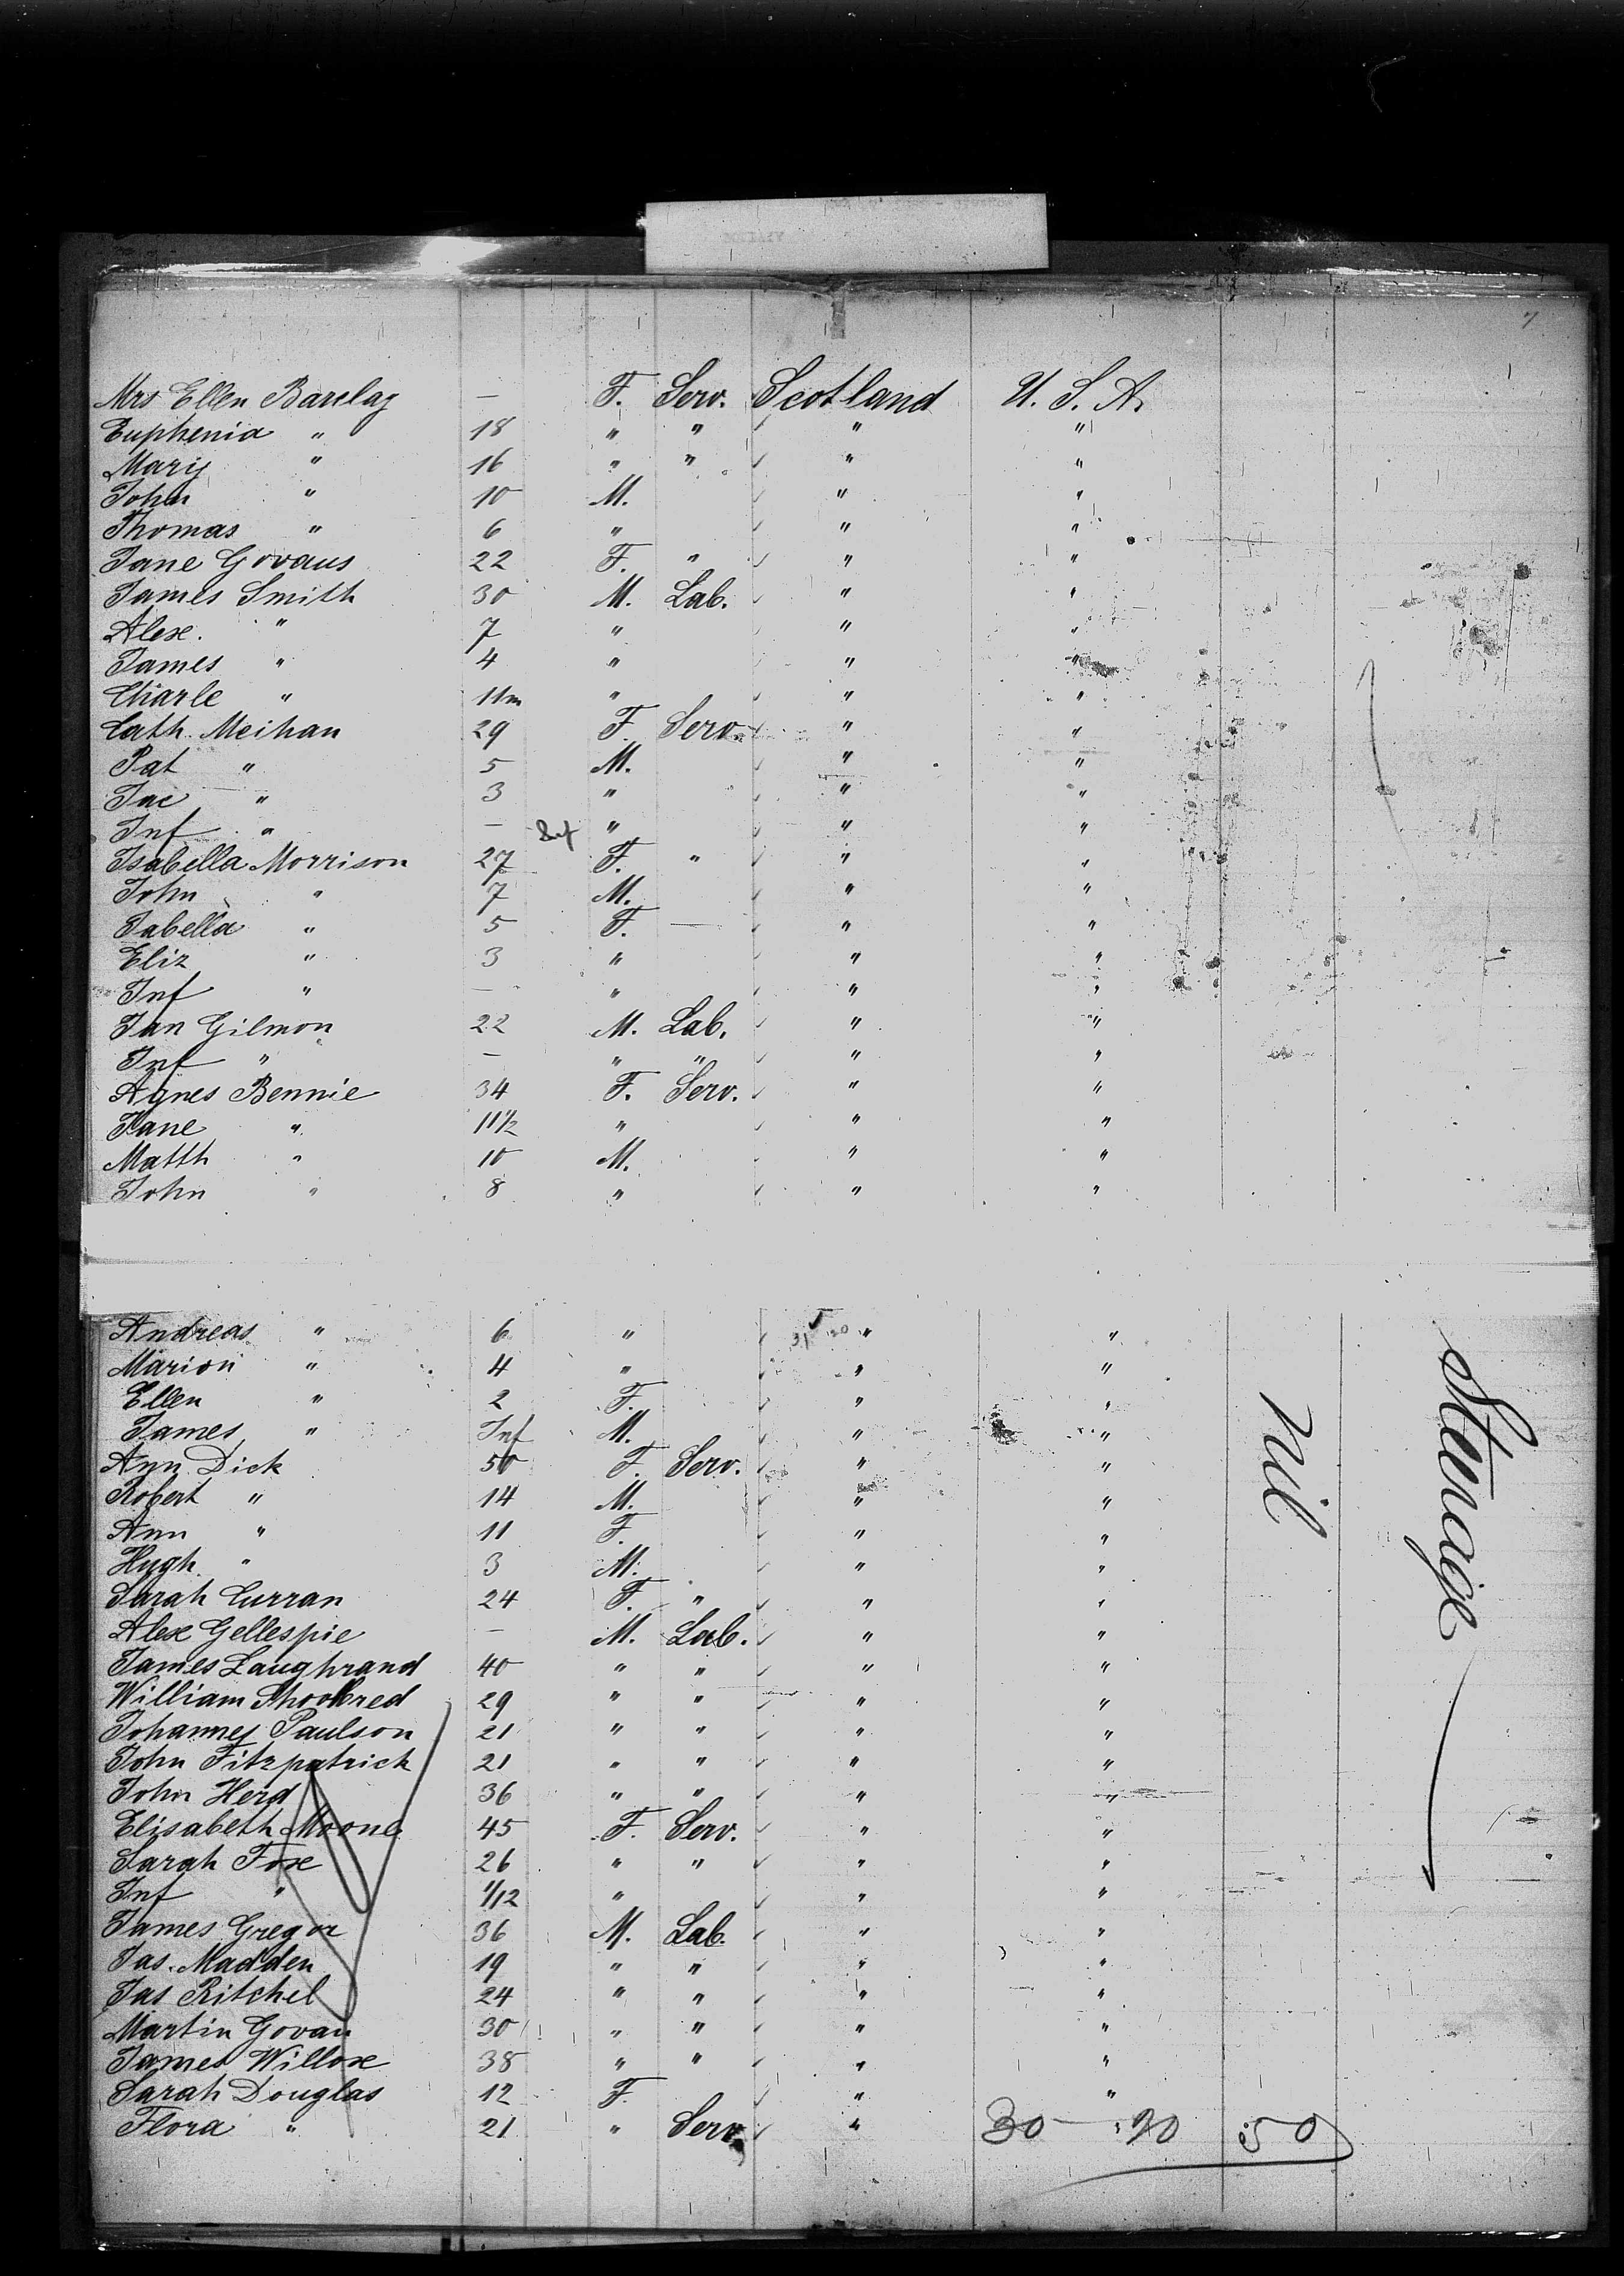 Mrs Ellen Barclay — F. Serv. Scotland U. S. A.
Euphenia " 18 " " " "
Mary " 16 " " " "
John " 10 M. " "
Thomas " 6 " " "
Jane Govaus 22 F. " " "
James Smith 30 M. Lab. " "
Alex. " 7 " " "
James " 4 " " "
Charle " 11m " " "
Cath. Meihan 29 F. Serv. " "
Pat " 5 M. " "
Jac " 3 " " "
Inf " — Inf " " "
Isabella Morrison 27 F. " " "
John " 7 M. " "
Isabella " 5 F. — " "
Eliz " 3 " " "
Inf " — " " "
Jan Gilmon 22 M. Lab. " "
Inf " — " " " "
Agnes Bennie 34 F. Serv. " "
Jane " 11½ " " "
Matth " 10 M. " "
John " 8 " " "
Andreas " 6 " " "
Marion " 4 " " "
Ellen " 2 F. " "
James " Inf M. " "
Ann Dick 50 F. Serv. " "
Robert " 14 M. " "
Ann " 11 F. " "
Hugh " 3 M. " "
Sarah Curran 24 F. " " "
Alex Gellespie — M. Lab. " "
James Laughrand 40 " " " "
William 29 " " " "
Johannes Paulson 21 " " " "
John Fitzpatrick 21 " " " "
John Herd 36 " " " "
Elisabeth Moone 45 F. Serv. " "
Sarah Foxe 26 " " " "
Inf " 1/12 " " "
James Gregor 36 M. Lab. " "
Jas. Madden 19 " " " "
Jas Ritchel 24 " " " "
Martin Govan 30 " " " "
James Willox 38 " " " "
Sarah Douglas 12 F. " "
Flora " 21 " Serv. " 30 - 20 50
nil
Steerage